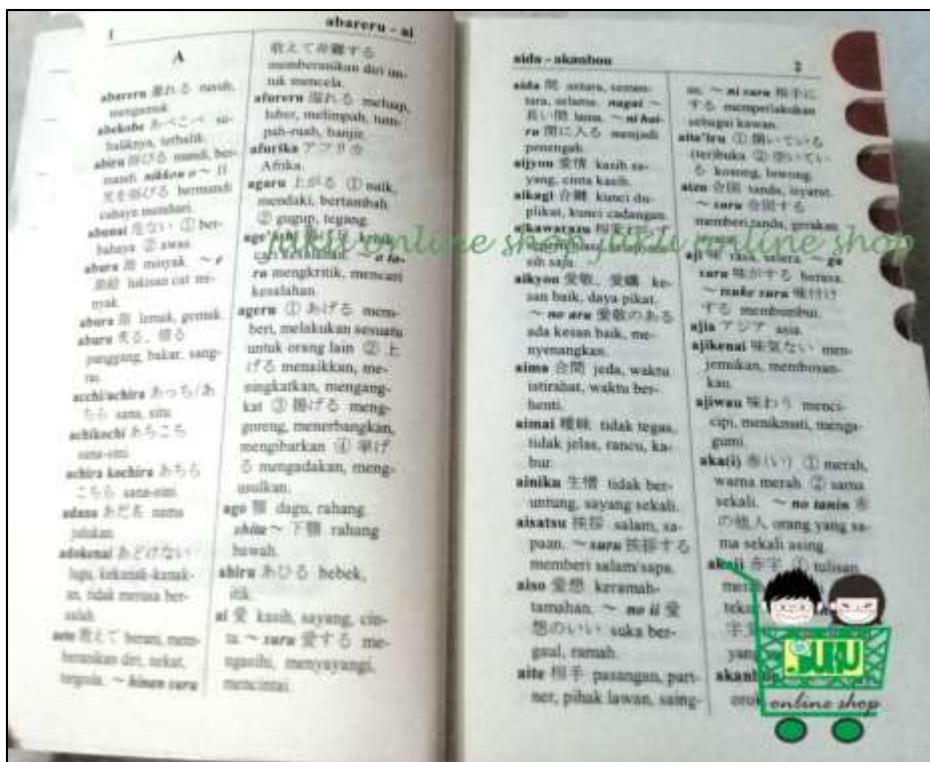 1
abareru - ai
A
abareru 暴れる rusuh,
mengamuk.
abekobe あべこべ se-
baliknya, terbalik.
abiru 浴びる mandi, ber-
mandi. nikkou o ~ 日
光を浴びる bermandi
cahaya matahari.
abunai 危ない ① ber-
bahaya ② awas.
abura 油 minyak. ~ e
油絵 lukisan cat mi-
nyak.
abura 脂 lemak, gemuk.
aburu
panggang, bakar, sang-
rai.
acchi/achira あっち/あ
ちら sana, situ.
achikochi あちこち
sana-sini.
achira kochira あちら
こちら sana-sini.
adana あだ名 nama
julukan.
adokenai あどけない
lugu, kekanak-kanak-
an, tidak merasa ber-
salah.
aete 敢えて berani, mem-
beranikan diri, nekat,
~ hinan suru
敢えて非難する
memberanikan diri un-
tuk mencela.
afureru 溢れる meluap,
luber, melimpah, tum-
pah-ruah, banjir.
afurika アフリカ
Afrika.
agaru 上がる ① naik,
mendaki, bertambah
② gugup, tegang.
age'ashi
cari kesalahan. ~ o to-
ru mengkritik, mencari
kesalahan.
ageru ① あげる mem-
beri, melakukan sesuatu
untuk orang lain ② 上
げる menaikkan, me-
ningkatkan, mengang-
kat ③ 揚げる meng-
goreng, menerbangkan,
mengibarkan ④ 挙げ
る mengadakan, meng-
usulkan.
ago 顎 dagu, rahang.
shita ~ 下顎 rahang
bawah.
ahiru あひる bebek,
itik.
ai 愛 kasih, sayang, cin-
ta. ~ suru 愛する me-
ngasihi, menyayangi,
mencintai.
aida - akanbou
2
aida 間 antara, semen-
tara, selama. nagai ~
長い間 lama. ~ ni hai-
ru 間に入る menjadi
penengah.
aijyou 愛情 kasih sa-
yang, cinta kasih.
aikagi 合鍵 kunci du-
plikat, kunci cadangan.
aikawarazu 相変わらず
sih saja.
aikyou 愛敬、愛嬌 ke-
san baik, daya pikat.
~ no aru 愛敬のある
ada kesan baik, me-
nyenangkan.
aima 合間 jeda, waktu
istirahat, waktu ber-
henti.
aimai 曖昧 tidak tegas,
tidak jelas, rancu, ka-
bur.
ainiku 生憎 tidak ber-
untung, sayang sekali.
aisatsu 挨拶 salam, sa-
paan. ~ suru 挨拶する
memberi salam/sapa.
aiso 愛想 keramah-
tamahan. ~ no ii 愛
想のいい suka ber-
gaul, ramah.
aite 相手 pasangan, part-
ner, pihak lawan, saing-
an. ~ ni suru 相手に
する memperlakukan
sebagai kawan.
aite'iru ① 開いている
(ter)buka ② 空いてい
る kosong, lowong.
aizu 合図 tanda, isyarat.
~ suru 合図する
memberi tanda, gerakan.
aji 味 rasa, selera. ~ ga
suru 味がする berasa.
~ tsuke suru 味付け
する membumbui.
ajia アジア asia.
ajikenai 味気ない men-
jemukan, membosan-
kan.
ajiwau 味わう menci-
cipi, menikmati, menga-
gumi.
aka(i) 赤(い) ① merah,
warna merah ② sama
sekali. ~ no tanin 赤
の他人 orang yang sa-
ma sekali asing.
akaji 赤字 ① tulisan
mera
teka
字
yang
akanbou
oro
juku online shop juku online shop
online shop